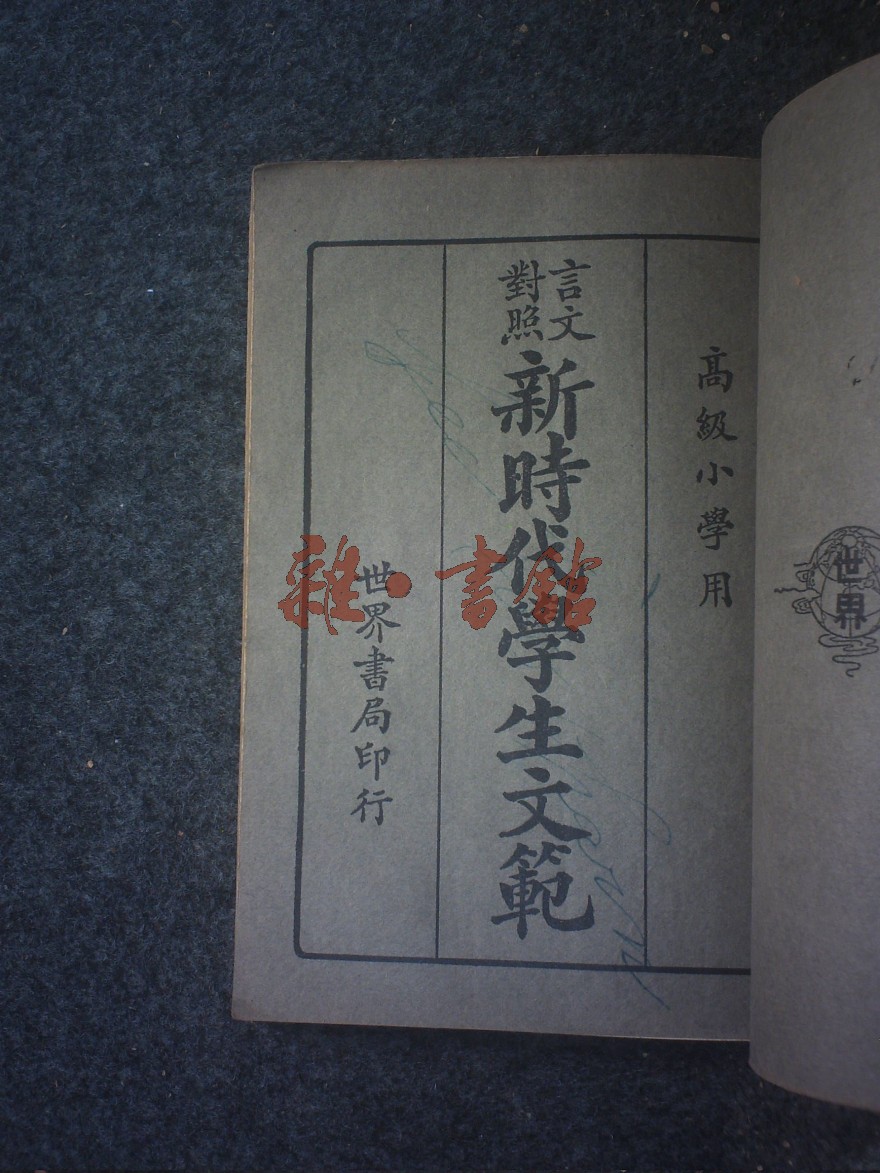 高級小學用
言文
對照
新時代學生文範
世界書局印行
世界
雜·書館